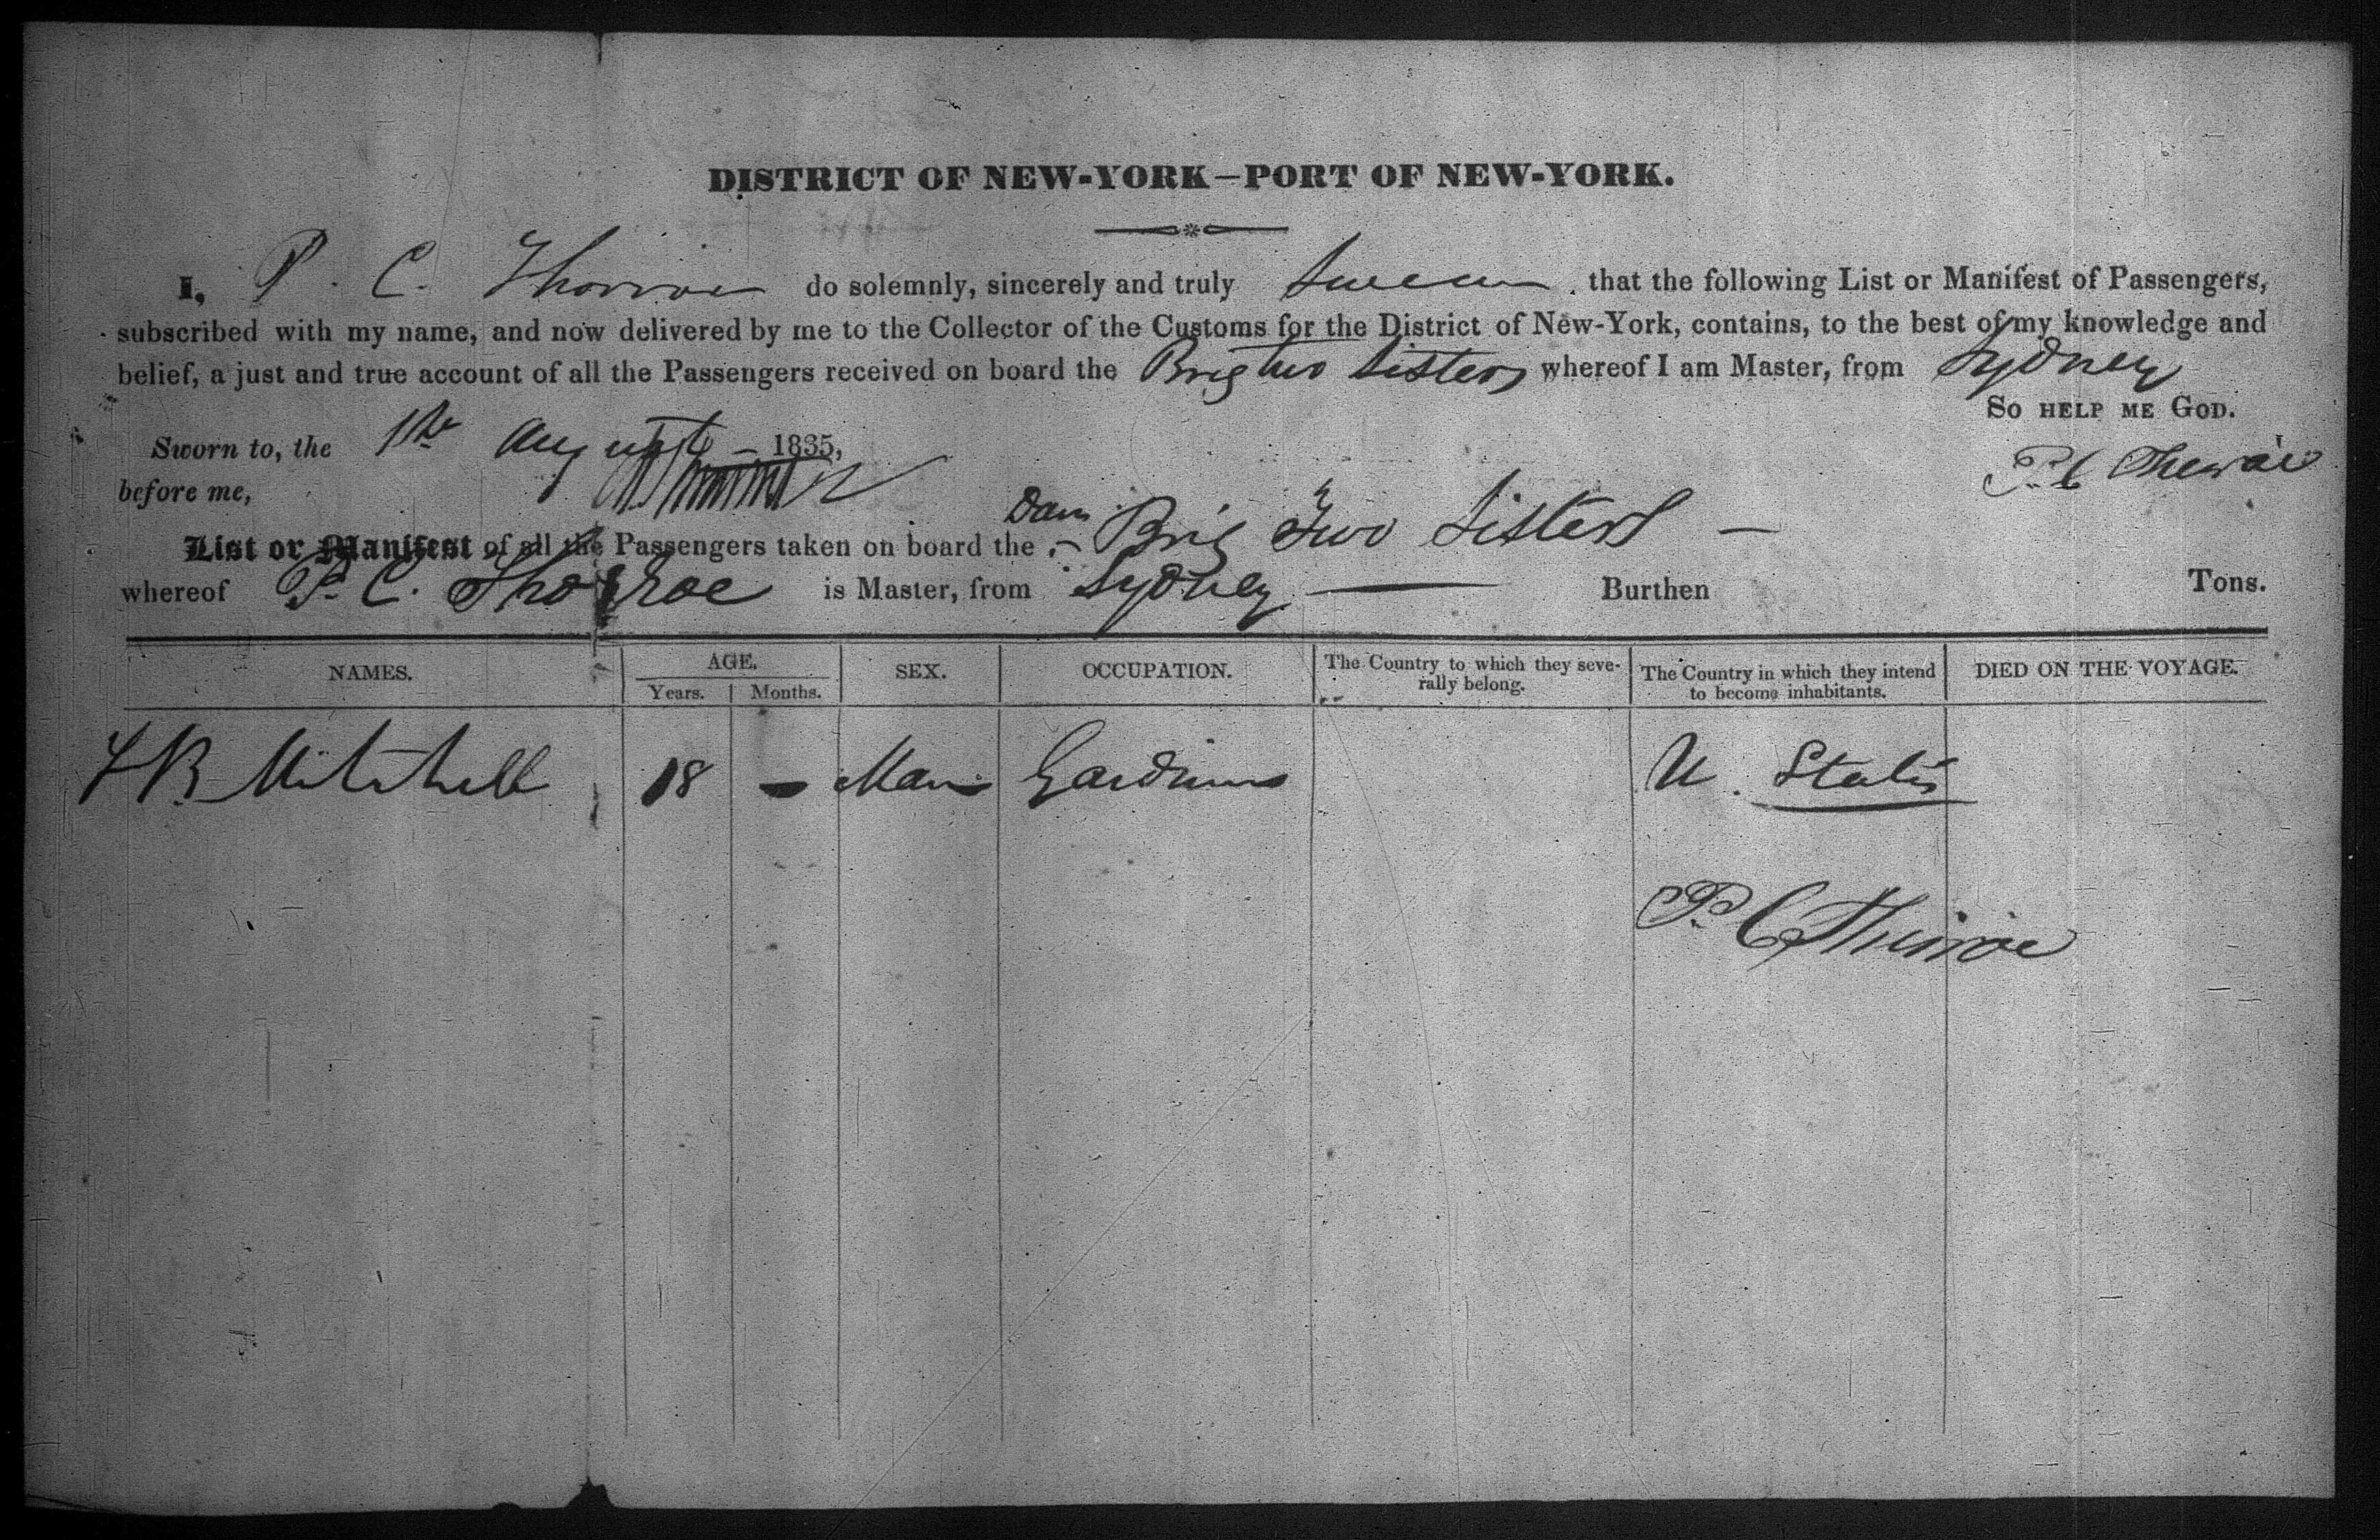 DISTRICT OF NEW-YORK—PORT OF NEW-YORK.
I, P. C. do solemnly, sincerely and truly swear that the following List or Manifest of Passengers,
subscribed with my name, and now delivered by me to the Collector of the Customs for the District of New-York, contains, to the best of my knowledge and
belief, a just and true account of all the Passengers received on board the Brig two Sisters whereof I am Master, from Sydney
SO HELP ME GOD.
Sworn to, the 1st August – 1835,
P. C.
before me,
Dan
List or Manifest of all the Passengers taken on board the Brig Two Sisters —
whereof P. C. is Master, from Sydney — Burthen Tons.
NAMES. AGE. SEX. OCCUPATION. The Country to which they seve- The Country in which they intend DIED ON THE VOYAGE.
Years. Months. rally belong. to become inhabitants.
B Mitchell 18 – Man U. States
P. C.